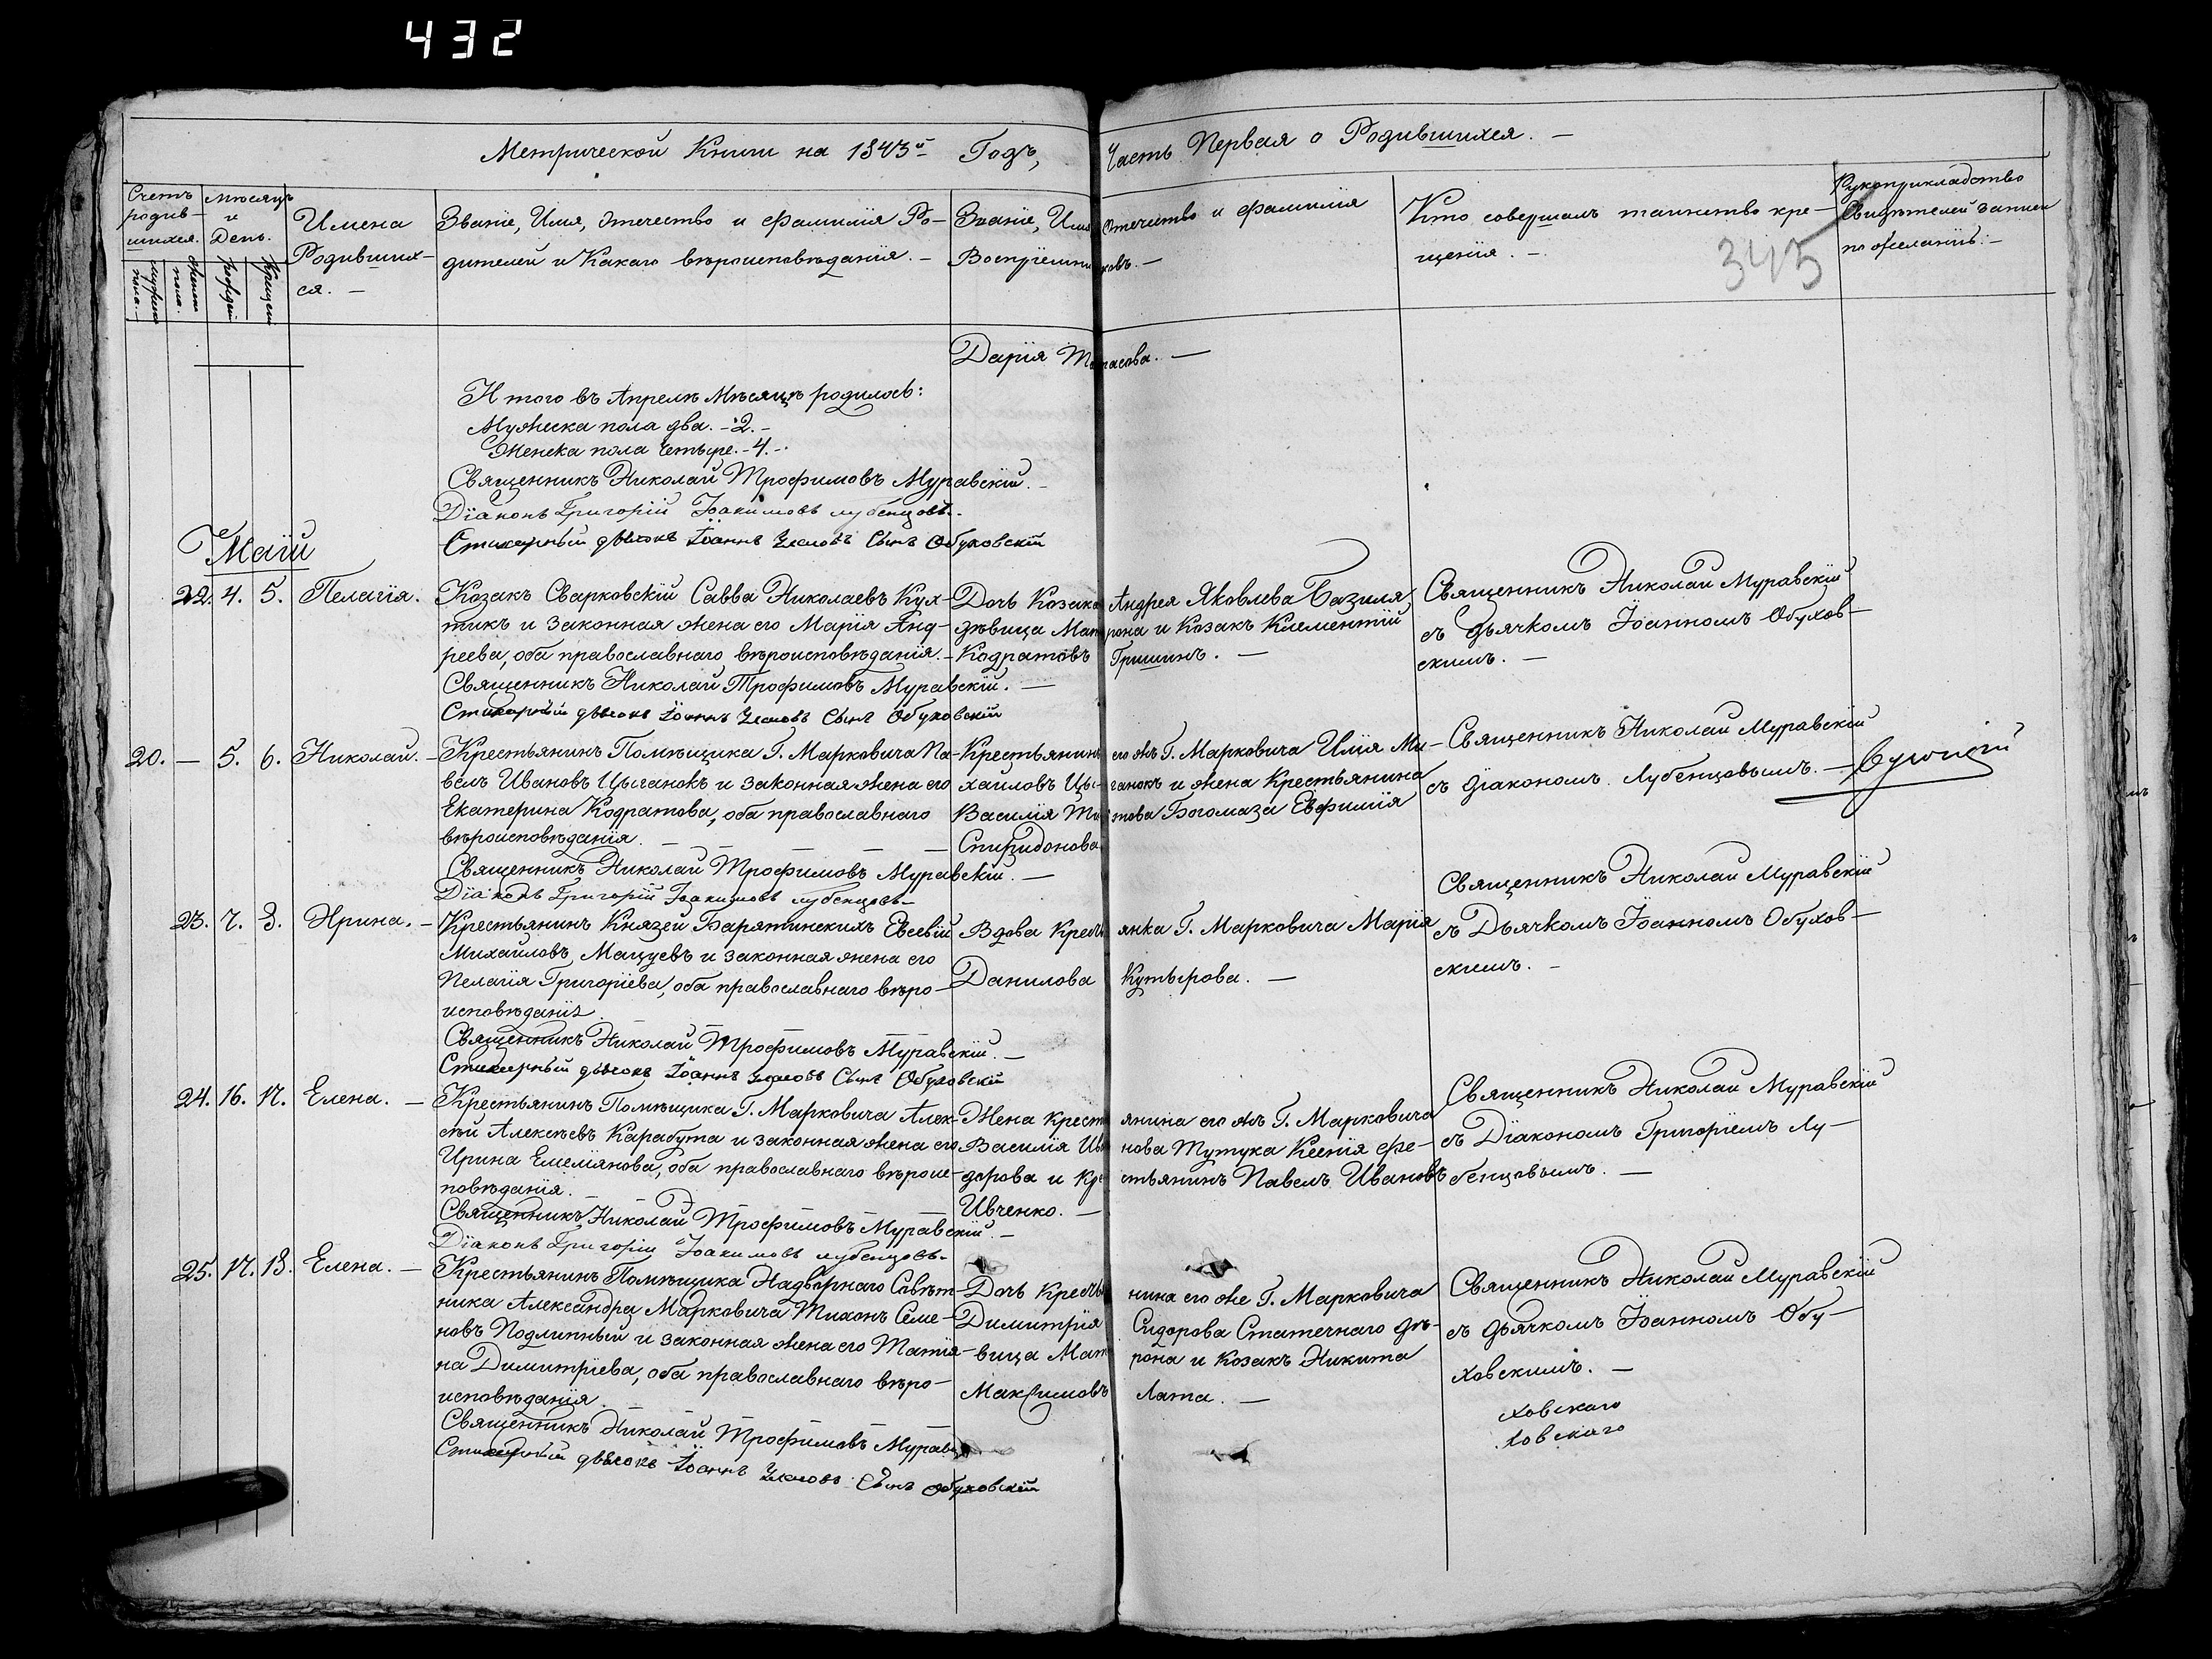 432
Метрической Книги на 1843й Годъ, Часть Первая о Родившихся. —
345
Счетъ родив-шихся.
Мѣсяцъ и День.
Имена Родивших-ся. —
Званіе, Имя, Отечество и Фамилія Ро-
дителей и Какаго вѣроисповѣданія. —
Званіе, Имя Отечество и Фамилія
Воспріемниковъ. —
Кто совершалъ таинство кре-
щенія. —
Рукоприкладство
Свидѣтелей записи
по желанію. —
Дарія Тарасова. —
Итого въ Апрелѣ Мѣсяцѣ родилось:
Мужеска пола два. -2.-
Женска пола Четыре. -4.-
Священникъ Николай Трофимовъ Муравскій. —
Діаконъ Григорій Іоакимовъ Лубенцовъ.
Стихарный дьячокъ Іоаннъ Сынъ Обуховскій
Маій
22. 4. 5. Пелагія.
Козакъ Сварковскій Савва Николаевъ Кух-
тикъ и законная жена его Марія Анд-
реева, оба православнаго вѣроисповѣданія. —
Священникъ Николай Трофимовъ Муравскій. —
Стихарный дьячокъ Іоаннъ Сынъ Обуховскій
Дочь Козака Андрея Яковлева Базиля
дѣвица Матрона и Козакъ Климентій
Кодратовъ Гришинъ. —
Священникъ Николай Муравскій
съ дьячкомъ Іоанномъ Обухов-
скимъ. —
20. — 5. 6. Николай. —
Крестьянинъ Помѣщика Г. Марковича Па-
велъ Ивановъ Цыганокъ и законная жена его
Екатерина Кодратова, оба православнаго
вѣроисповѣданія. —
Священникъ Николай Трофимовъ Муравскій. —
Діаконъ Григорій Іоакимовъ Лубенцовъ
Крестьянинъ его жъ Г. Марковича Илія Ми-
хайловъ Цыганокъ и жена Крестьянина
Василія Титова Богомаза Евфимія
Спиридонова
Священникъ Николай Муравскій
съ діакономъ Лубенцовымъ. —
23. 7. 8. Ирина. —
Крестьянинъ Князей Барятинскихъ Евсевій
Михайловъ Мацуевъ и законная жена его
Пелагія Григоріева, оба православнаго вѣро-
исповѣданія
Священникъ Николай Трофимовъ Муравскій. —
Стихарный дьячокъ Іоаннъ Сынъ Обуховскій
Вдова Крестьянка Г. Марковича Марія
Данилова Кутырова. —
Священникъ Николай Муравскій
съ Дьячкомъ Іоанномъ Обухов-
скимъ. —
24. 16. 17. Елена. —
Крестьянинъ Помѣщика Г. Марковича Алек-
сѣй Алексѣевъ Карабута и законная жена его
Ирина Емеліянова, оба православнаго вѣроис-
повѣданія.
Священникъ Николай Трофимовъ Муравскій. —
Діаконъ Григорій Іоакимовъ Лубенцовъ
Жена Крестьянина его жъ Г. Марковича
Василія Иванова Тутука Ксенія Фе-
дорова и Крестьянинъ Павелъ Ивановъ
Ивченко. —
Священникъ Николай Муравскій
съ Діакономъ Григоріемъ Лу-
бенцовымъ. —
25. 17. 18. Елена. —
Крестьянинъ Помѣщика Надворнаго Совѣт-
ника Александра Марковича Тихонъ Семе-
новъ Подлипный и законная жена его Татія-
на Димитріева, оба православнаго вѣро-
исповѣданія.
Священникъ Николай Трофимовъ
Стихарный дьячокъ Іоаннъ Сынъ Обуховскій
Дочь Крестьянина его же Г. Марковича
Димитрія Сидорова Статечнаго дѣ-
вица Матрона и Козакъ Никита
Максимовъ Лата. —
Священникъ Николай Муравскій
съ дьячкомъ Іоанномъ Обу-
ховскимъ. —
ховскаго
ховскаго